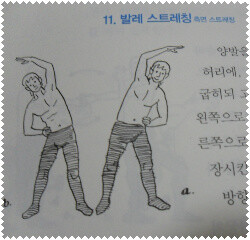 11. 발레 스트레칭 측면 스트레칭
양반
허리에,
굽히되
왼쪽으로
른쪽으로
장시간
방향
b.
a.